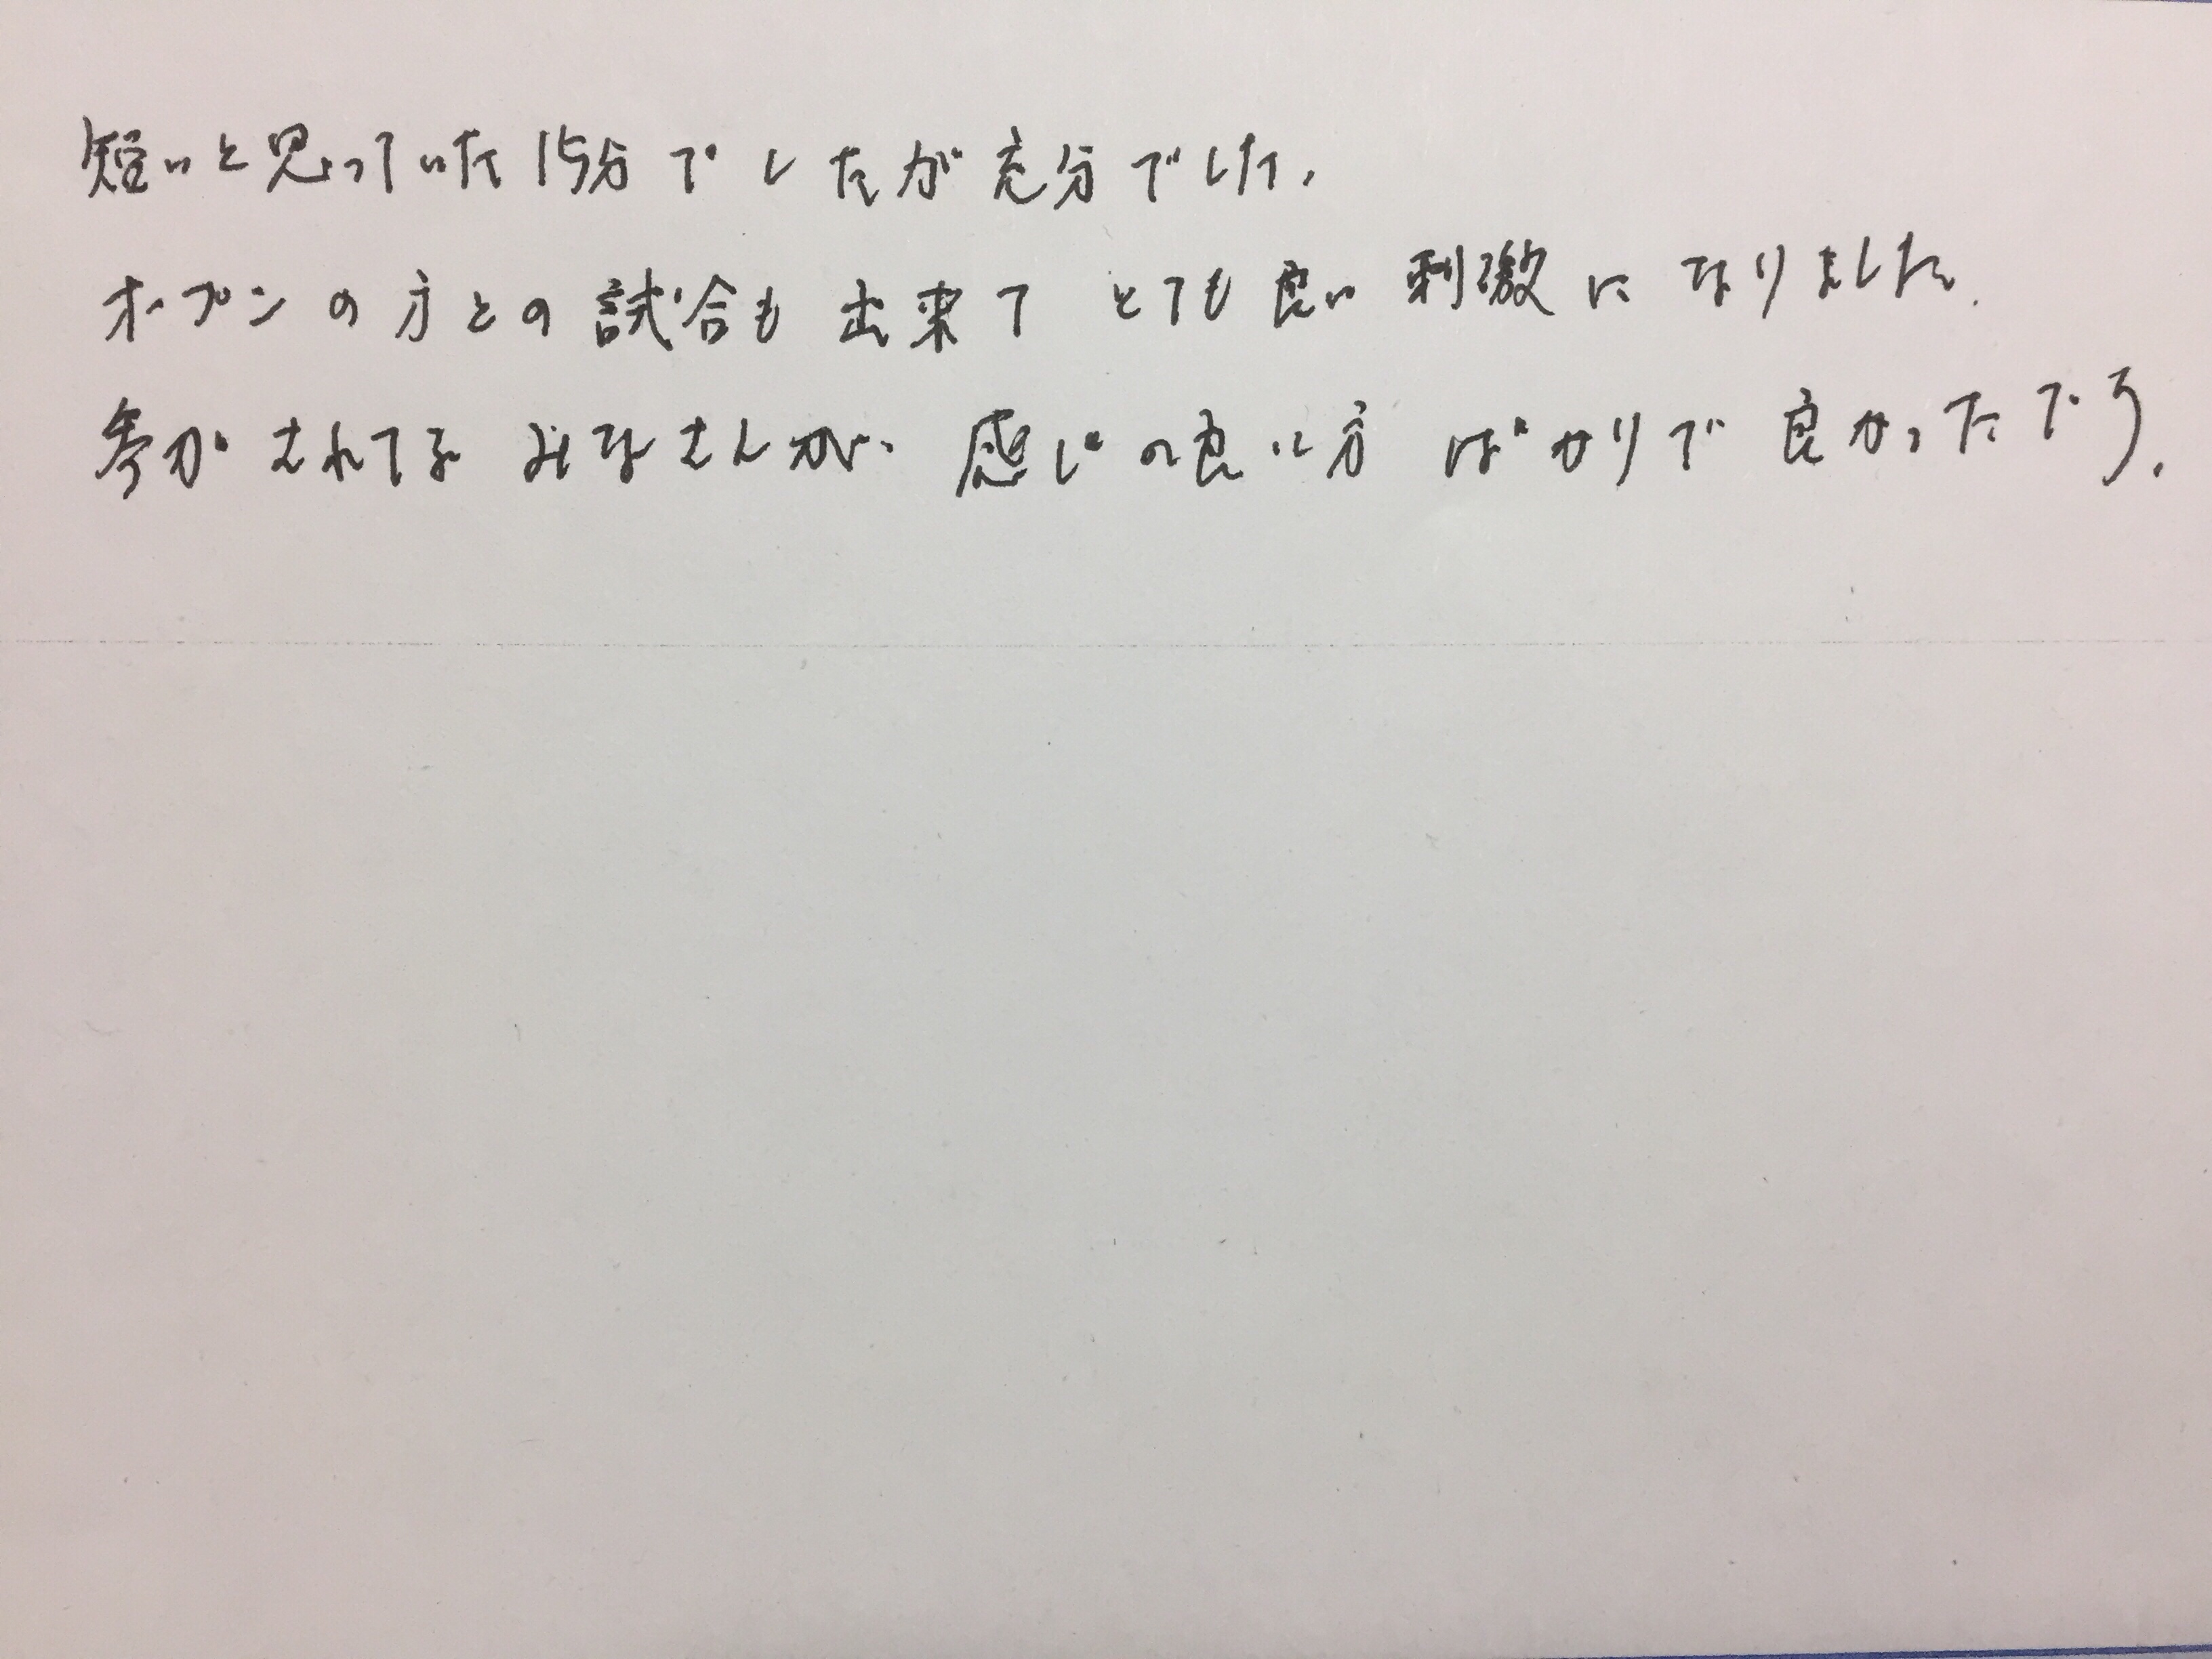 短いと思っていた15分でしたが充分でした.
オープンの方との試合も出来てとても良い刺激になりました.
参加されてるみなさんが、感じの良い方ばかりで良かったです.